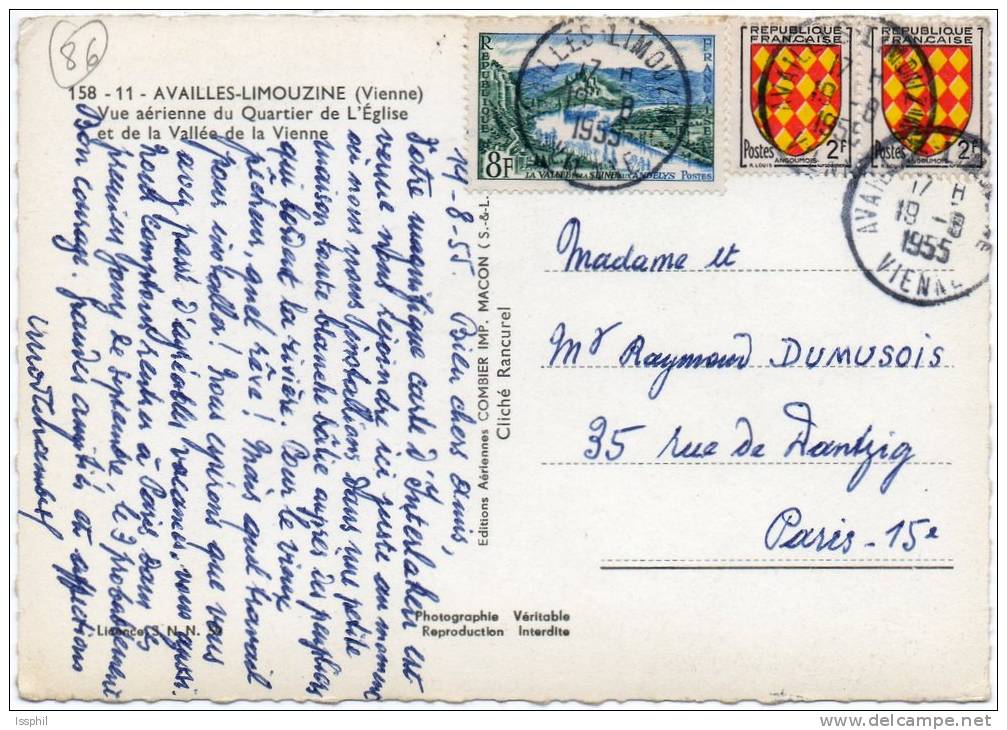 86
158 - 11 - AVAILLES-LIMOUZINE (Vienne)
Vue aérienne du Quartier de L'Église
et de la Vallée de la Vienne
RÉPUBLIQUE
FRANÇAISE
8F
LA VALLÉE DE LA SEINE AUX ANDELYS POSTES
RÉPUBLIQUE
FRANÇAISE
Postes 2F
R. LOUIS ANGOUMOIS
RÉPUBLIQUE
FRANÇAISE
Postes 2F
R. LOUIS ANGOUMOIS
17 H
19 - 8
1955
17 H
19 - 8
1955
17 H
19 - 8
1955
VIENNE
19-8-55. Bien chers amis,
Votre magnifique carte d'Interlaken est
venue nous rejoindre ici juste au moment
où nous nous prélassions dans une petite
maison toute blanche bâtie auprès des peupliers
qui bordent la rivière. Pour le vieux
pêcheur, quel rêve! Mais quel travail
pour installer! Nous espérons que vous
avez passé d'agréables vacances, vous aussi.
Nous comptons rentrer à Paris dans les
premiers jours de septembre, le 3 probablement
Bon courage. Grandes amitiés et affections
Editions Aériennes COMBIER IMP. MACON (S.-&-L.
Cliché Rancurel
Madame et
Mr Raymond DUMUSOIS
35 rue de Dantzig
Paris-15e
Photographie Véritable
Reproduction Interdite
Issphil
www.delcampe.net